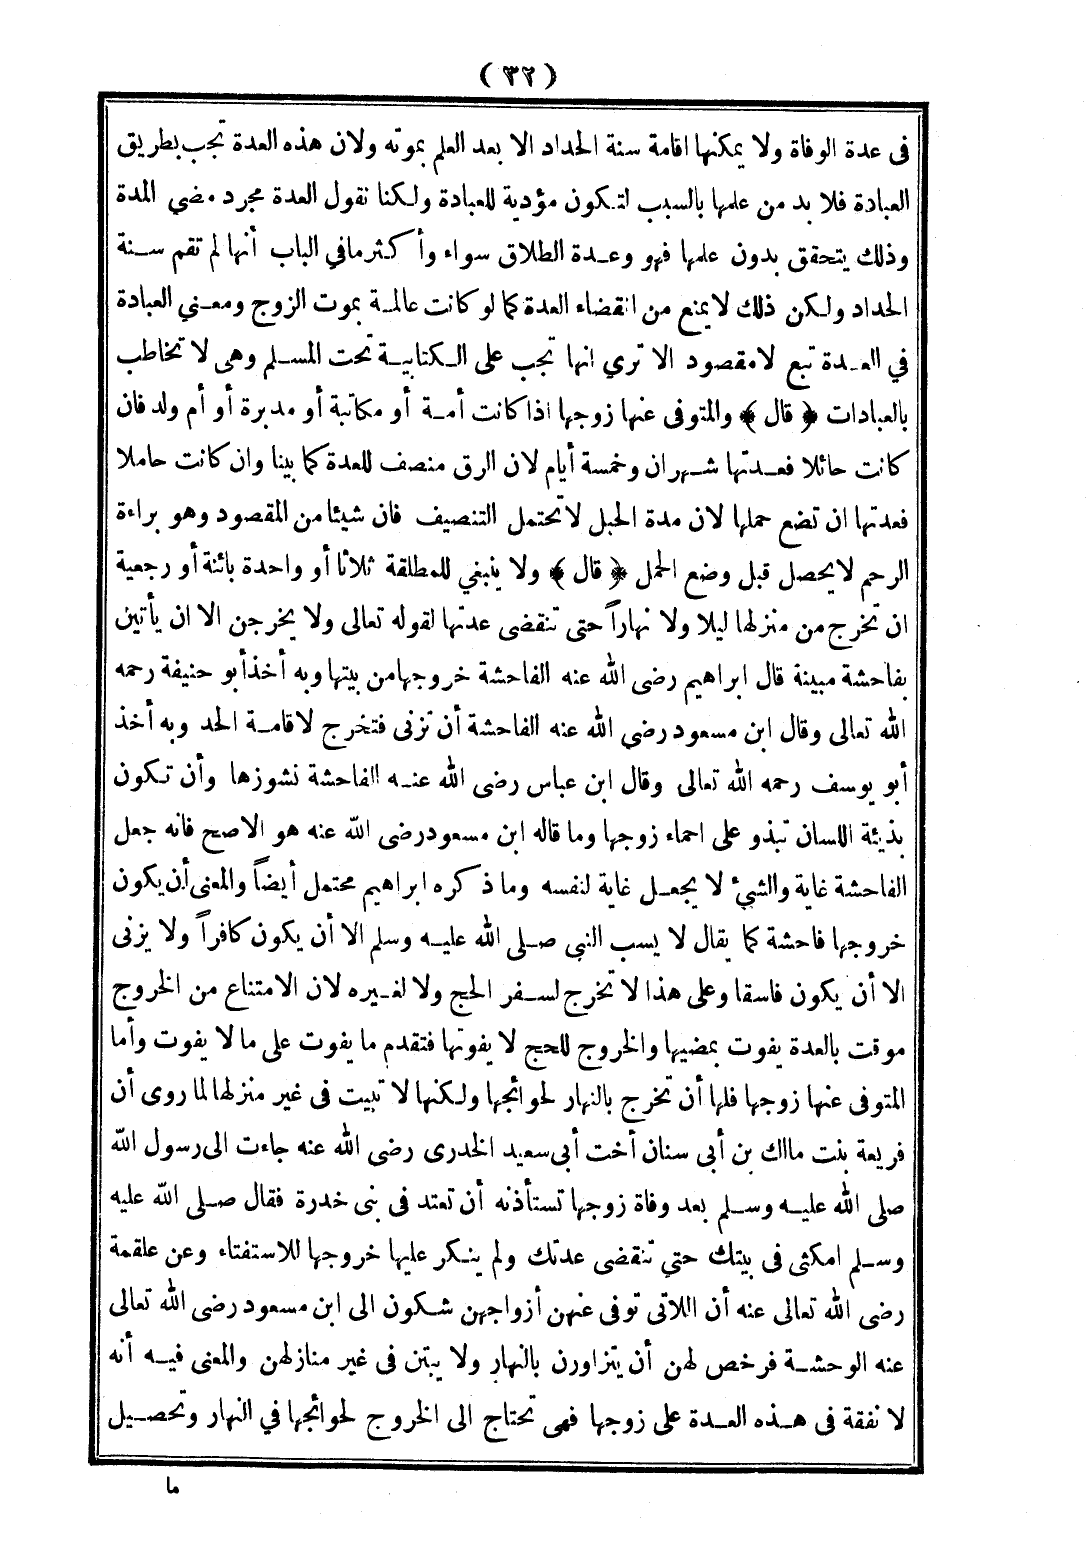 ( ٣٢ )
فى عدة الوفاة ولا يمكنها اقامة سنة الحداد الا بعد العلم بموته ولان هذه العدة تجب بطريق
العبادة فلا بد من علمها بالسبب لتكون مؤدية للعبادة ولكنا نقول العدة مجرد مضي المدة
وذلك يتحقق بدون علمها فهو وعدة الطلاق سواء وأكثر مافي الباب أنها لم تقم سنة
الحداد ولكن ذلك لا يمنع من انقضاء العدة كما لو كانت عالمة بموت الزوج ومعني العبادة
في العدة تبع لا مقصود الا تري انها تجب على الكتابية تحت المسلم وهى لا تخاطب
بالعبادات ﴿ قال ﴾ والمتوفى عنها زوجها اذا كانت أمة أو مكاتبة أو مدبرة أو أم ولد فان
كانت حائلا فعدتها شهران وخمسة أيام لان الرق منصف للعدة كما بينا وان كانت حاملا
فعدتها ان تضع حملها لان مدة الحبل لا تحتمل التنصيف فان شيئا من المقصود وهو براءة
الرحم لا يحصل قبل وضع الحمل ﴿ قال ﴾ ولا ينبغي للمطلقة ثلاثا أو واحدة بائنة أو رجعية
ان تخرج من منزلها ليلا ولا نهاراً حتى تنقضى عدتها لقوله تعالى ولا يخرجن الا ان يأتين
بفاحشة مبينة قال ابراهيم رضى الله عنه الفاحشة خروجها من بيتها وبه أخذ أبو حنيفة رحمه
الله تعالى وقال ابن مسعود رضي الله عنه الفاحشة أن تزنى فتخرج لاقامة الحد وبه أخذ
أبو يوسف رحمه الله تعالى وقال ابن عباس رضى الله عنه الفاحشة نشوزها وأن تكون
بذيئة اللسان تبذو على احماء زوجها وما قاله ابن مسعود رضى الله عنه هو الاصح فانه جعل
الفاحشة غاية والشيء لا يجعل غاية لنفسه وما ذكره ابراهيم محتمل أيضاً والمعنى أن يكون
خروجها فاحشة كما يقال لا يسب النبى صلى الله عليه وسلم الا أن يكون كافراً ولا يزنى
الا أن يكون فاسقا وعلى هذا لا تخرج لسفر الحج ولا لغيره لان الامتناع من الخروج
موقت بالعدة يفوت بمضيها والخروج للحج لا يفوتها فتقدم ما يفوت على ما لا يفوت وأما
المتوفى عنها زوجها فلها أن تخرج بالنهار لحوائجها ولكنها لا تبيت فى غير منزلها لما روى أن
فريعة بنت مالك بن أبى سنان أخت أبى سعيد الخدرى رضى الله عنه جاءت الى رسول الله
صلى الله عليه وسلم بعد وفاة زوجها تستأذنه أن تعتد فى بنى خدرة فقال صلى الله عليه
وسلم امكثى فى بيتك حتي تنقضى عدتك ولم ينكر عليها خروجها للاستفتاء وعن علقمة
رضى الله تعالى عنه أن اللاتى توفى عنهن أزواجهن شكون الى ابن مسعود رضى الله تعالى
عنه الوحشة فرخص لهن أن يتزاورن بالنهار ولا يبتن فى غير منازلهن والمعنى فيه أنه
لا نفقة فى هذه العدة على زوجها فهى تحتاج الى الخروج لحوائجها في النهار وتحصيل
ما